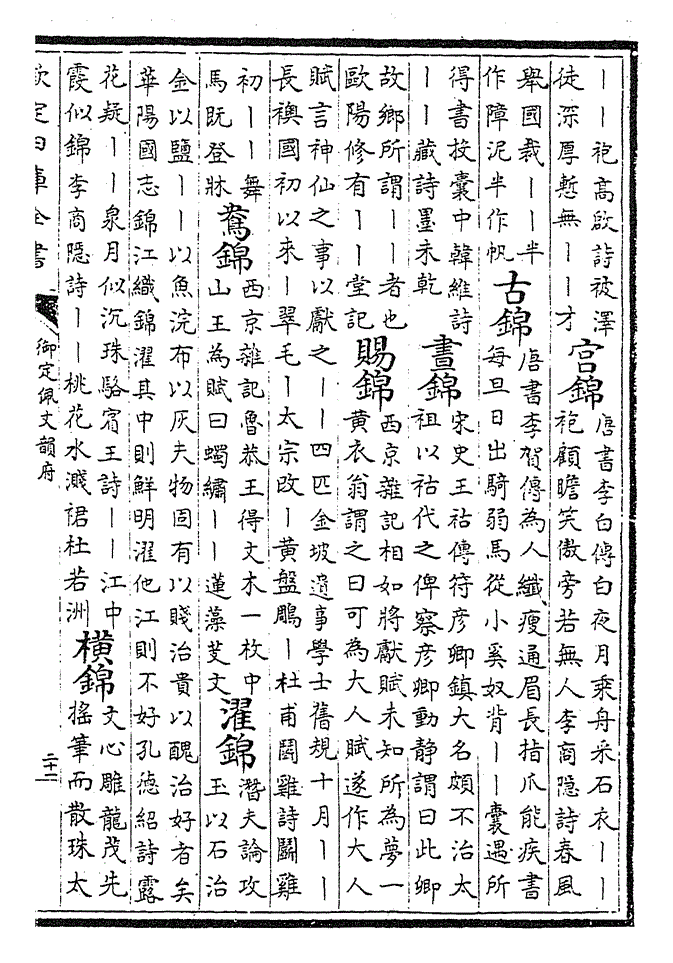 丨丨袍高啟詩被澤
徒深厚慙無丨丨才
宫錦
唐書李白傳白夜月乘舟采石衣丨丨
袍顧瞻笑傲旁若無人李商隠詩春風
舉國裁丨丨半
作障泥半作帆
古錦
唐書李賀傳為人纎瘦通眉長指爪能疾書
每旦日出騎弱馬從小奚奴背丨丨囊遇所
得書投囊中韓維詩
丨丨藏詩墨未乾
晝錦
宋史王祜傳符彦卿鎮大名頗不治太
祖以祜代之俾察彦卿動静謂曰此卿
故鄉所謂丨丨者也
歐陽修有丨丨堂記
賜錦
西京雜記相如將獻賦未知所為夢一
黄衣翁謂之曰可為大人賦遂作大人
賦言神仙之事以獻之丨丨四匹金坡遺事學士舊規十月丨丨
長襖國初以來丨翠毛丨太宗改丨黄盤鵰丨杜甫鬬雞詩鬬雞
初丨丨舞
馬既登牀
鴦錦
西京雜記魯恭王得文木一枚中
山王為賦曰蠋繡丨丨蓮藻芰文
濯錦
潛夫論攻
玉以石治
金以鹽丨丨以魚浣布以灰夫物固有以賤治貴以醜治好者矣
華陽國志錦江織錦濯其中則鮮明濯他江則不好孔德紹詩露
花疑丨丨泉月似沉珠駱賓王詩丨丨江中
霞似錦李商隠詩丨丨桃花水濺裙杜若洲
横錦
文心雕龍茂先
摇筆而散珠太
欽定四庫全書
御定佩文韻府
二十二